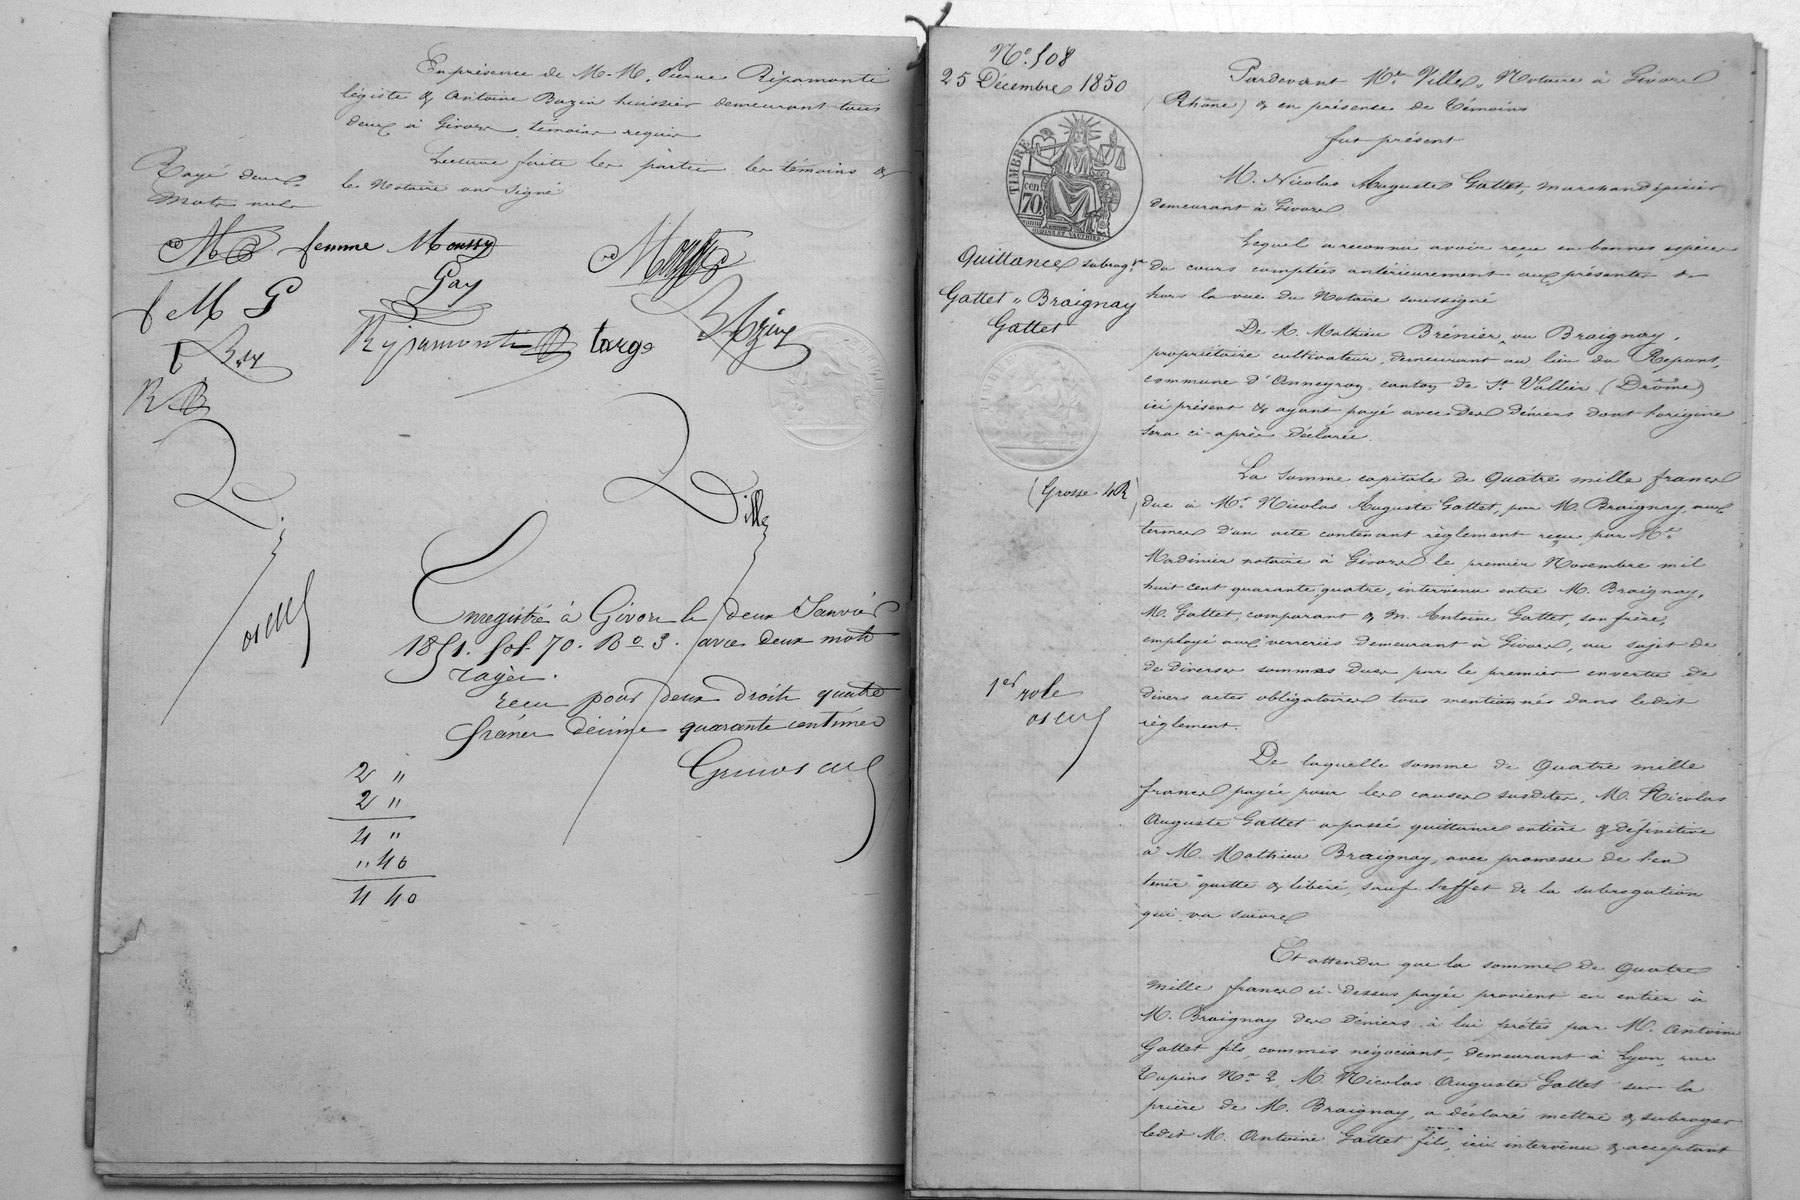 En présence de M. M. Pierre Ripamonti
légiste & Antoine Bazin huissier demeurant tous
deux à Givors, témoins requis
Lecture faite les parties, les témoins &
le Notaire ont signé
Rayé deux
Mots nuls
femme Moussy
Gay
f M G
Ripamonti
targe
Bazin
R B
Ville
Enregistré à Givors le deux Janvier
1851. fol. 70. Ro 3. avec deux mots
rayés.
Reçu pour deux droits quatre
francs décime quarante centimes
2 "
2 "
4 "
" 40
4 40
No. 508
25 Décembre 1850
TIMBRE
70 cen
Quittance subrog.
Gattet à Braignay
Gattet
(Grosse 4R)
1er role
Pardevant Me Ville, Notaire à Givors
(Rhône) & en présence de témoins
fut présent
M. Nicolas Auguste Gattet, marchand épicier
demeurant à Givors
Lequel a reconnu avoir reçu en bonnes espèces
du cours comptées antérieurement aux présentes &
hors la vue du Notaire soussigné
De M. Mathieu Brénier ou Braignay,
propriétaire cultivateur, demeurant au lieu du Repont,
commune d'Anneyron, canton de St Vallier (Drôme)
ici présent & ayant payé avec des déniers dont l'origine
sera ci-après déclarée.
La somme capitale de Quatre mille francs
due à Mr Nicolas Auguste Gattet, par M. Braignay, aux
termes d'un acte contenant règlement reçu par Me
Madinier notaire à Givors le premier Novembre mil
huit cent quarante quatre, intervenu entre M. Braignay,
M. Gattet, comparant & M. Antoine Gattet, son frère,
employé aux verreries demeurant à Givors, au sujet de
de diverses sommes dues par le premier en vertu de
divers actes obligatoires tous mentionnés dans ledit
règlement.
De laquelle somme de Quatre mille
francs payée pour les causes susdites, M. Nicolas
Auguste Gattet a passé quittance entière & définitive
à M. Mathieu Braignay, avec promesse de l'en
tenir quitte & libéré, sauf l'effet de la subrogation
qui va suivre
Et attendu que la somme de Quatre
mille francs ci-dessus payée provient en entier à
M. Braignay des déniers à lui prêtés par M. Antoine
Gattet fils, commis négociant, demeurant à Lyon, rue
Tupins No 2, M. Nicolas Auguste Gattet sur la
prière de M. Braignay, a déclaré mettre & subroger
ledit M. Antoine Gattet fils, ici intervenu & acceptant